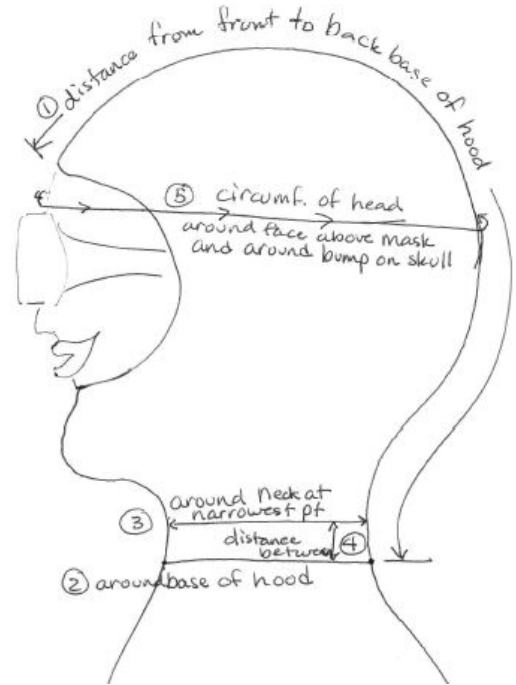 ① distance from front to back base of hood
⑤ circumf. of head
around face above mask
and around bump on skull
around neck at
③ narrowest pt
distance
between ④
② around base of hood